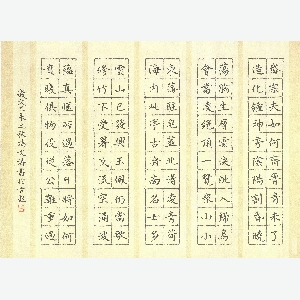 岱宗夫如何齊魯青未了
造化鍾神秀陰陽割昏曉
蕩胸生層雲決眥入歸鳥
會當凌絕頂一覽眾山小
東藩駐皂蓋北渚凌青荷
海內此亭古濟南名士多
雲山已發興玉佩仍當歌
修竹不受暑交流空湧波
蘊真愜所遇落日將如何
貴賤俱物役從公難重過
歲癸未之秋